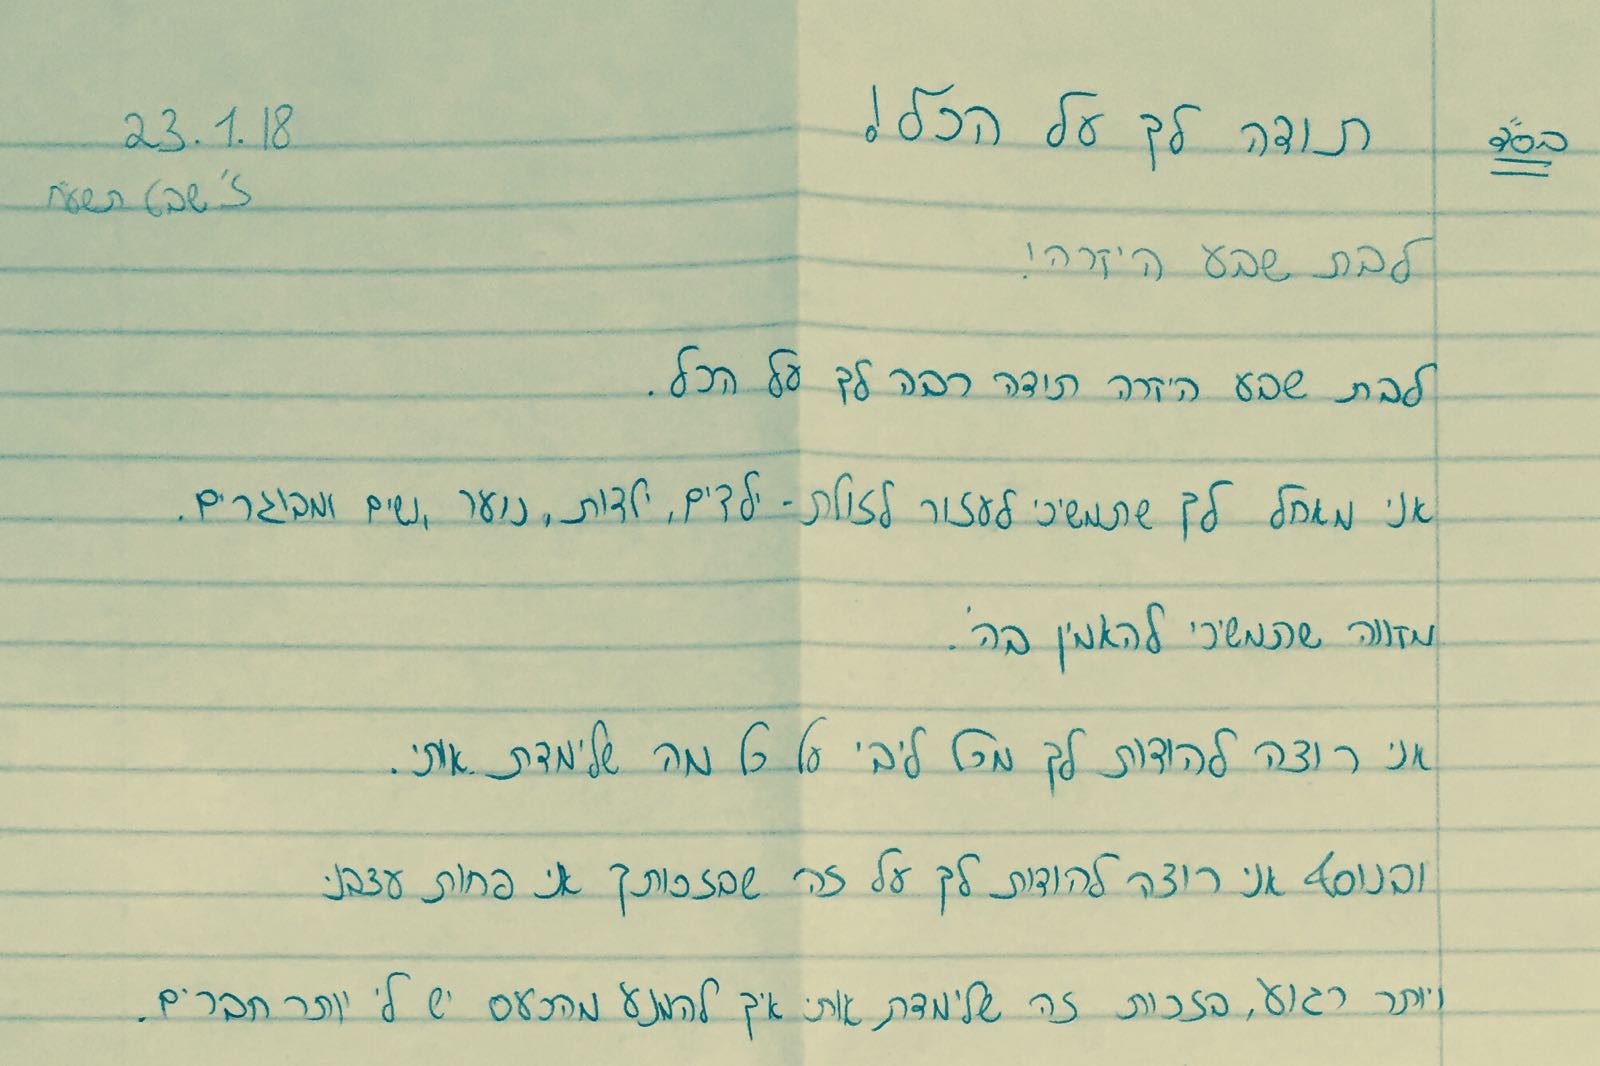 בס"ד
תודה לך על הכל!
23.1.18
ז' שבט תשע"ח
לבת שבע היקרה!
לבת שבע היקרה תודה רבה לך על הכל.
אני מאחל לך שתמשיכי לעזור לזולת - ילדים, ילדות, נוער, נשים ומבוגרים.
מקווה שתמשיכי להאמין בה'.
אני רוצה להודות לך מכל ליבי על כל מה שלימדת אותי.
ובנוסף אני רוצה להודות לך על זה שבזכותך אני פחות עצבני
ויותר רגוע, בזכות זה שלימדת אותי איך להמנע מהכעס יש לי יותר חברים.